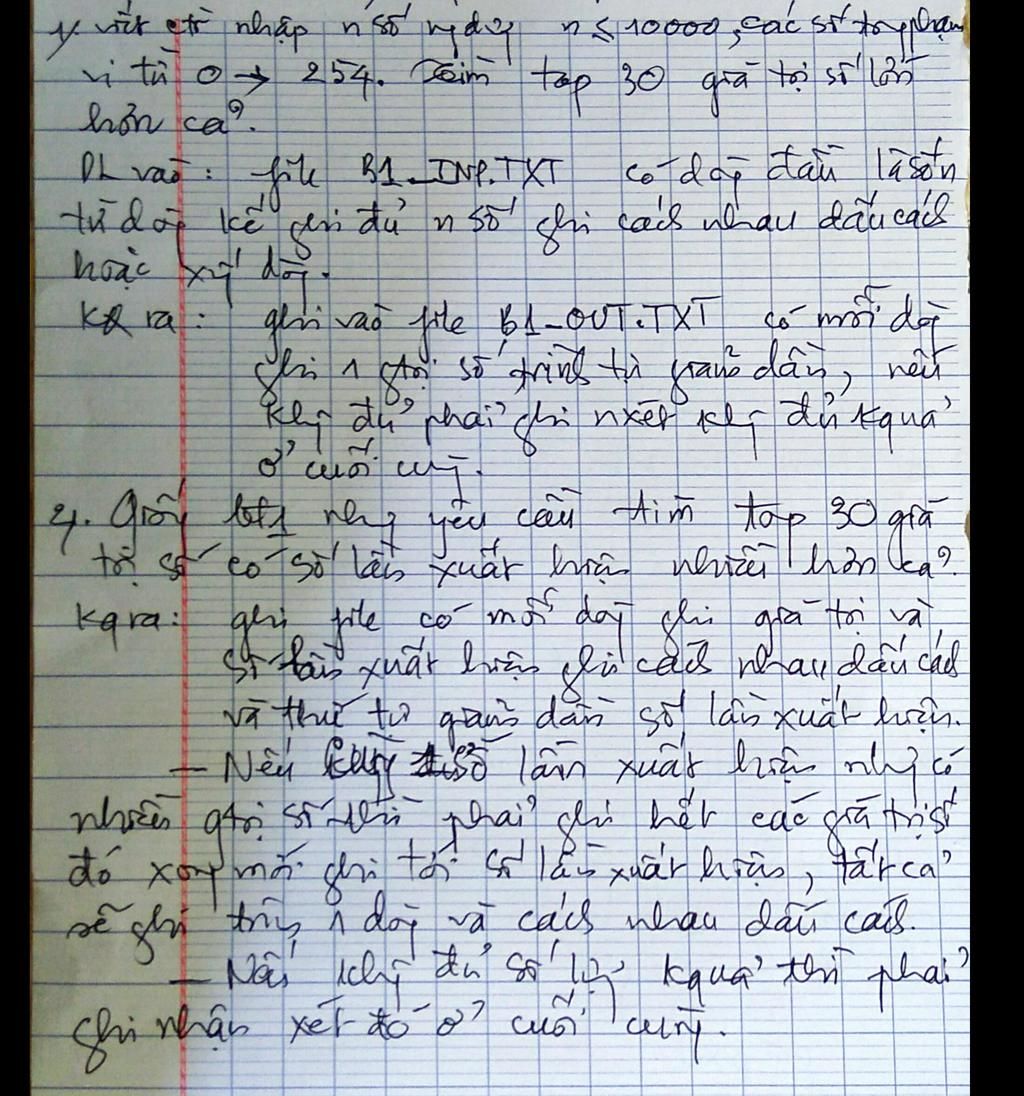 1/. viết ctr nhập n số ng dg n ≤ 10000, các số tg phạm
vi từ 0 → 254. Tìm top 30 giá trị số lớn
hơn cả.
DL vào: file B1_INP.TXT có dòg đầu là số n
từ dòg kế ghi đủ n số ghi cách nhau dấu cách
hoặc xg dòg.
KQ ra: ghi vào file B1_OUT.TXT có mỗi dòg
ghi 1 gtrị số trình tự giảm dần, nếu
khg đủ phải ghi nxét khg đủ kquả
ở cuối cùg.
2/. Giốg bt1 nhg yêu cầu tìm top 30 giá
trị số có số lần xuất hiện nhiều hơn cả.
Kq ra: ghi file có mỗi dòg ghi giá trị và
số lần xuất hiện ghi cách nhau dấu cách
và thứ tự giảm dần số lần xuất hiện.
– Nếu cùg số lần xuất hiện nhg có
nhiều gtrị số thì phải ghi hết các giá trị số
đó xong mới ghi tới số lần xuất hiện, tất cả
sẽ ghi trên 1 dòg và cách nhau dấu cách.
– Nếu khg đủ số lg kquả thì phải
ghi nhận xét đó ở cuối cùng.